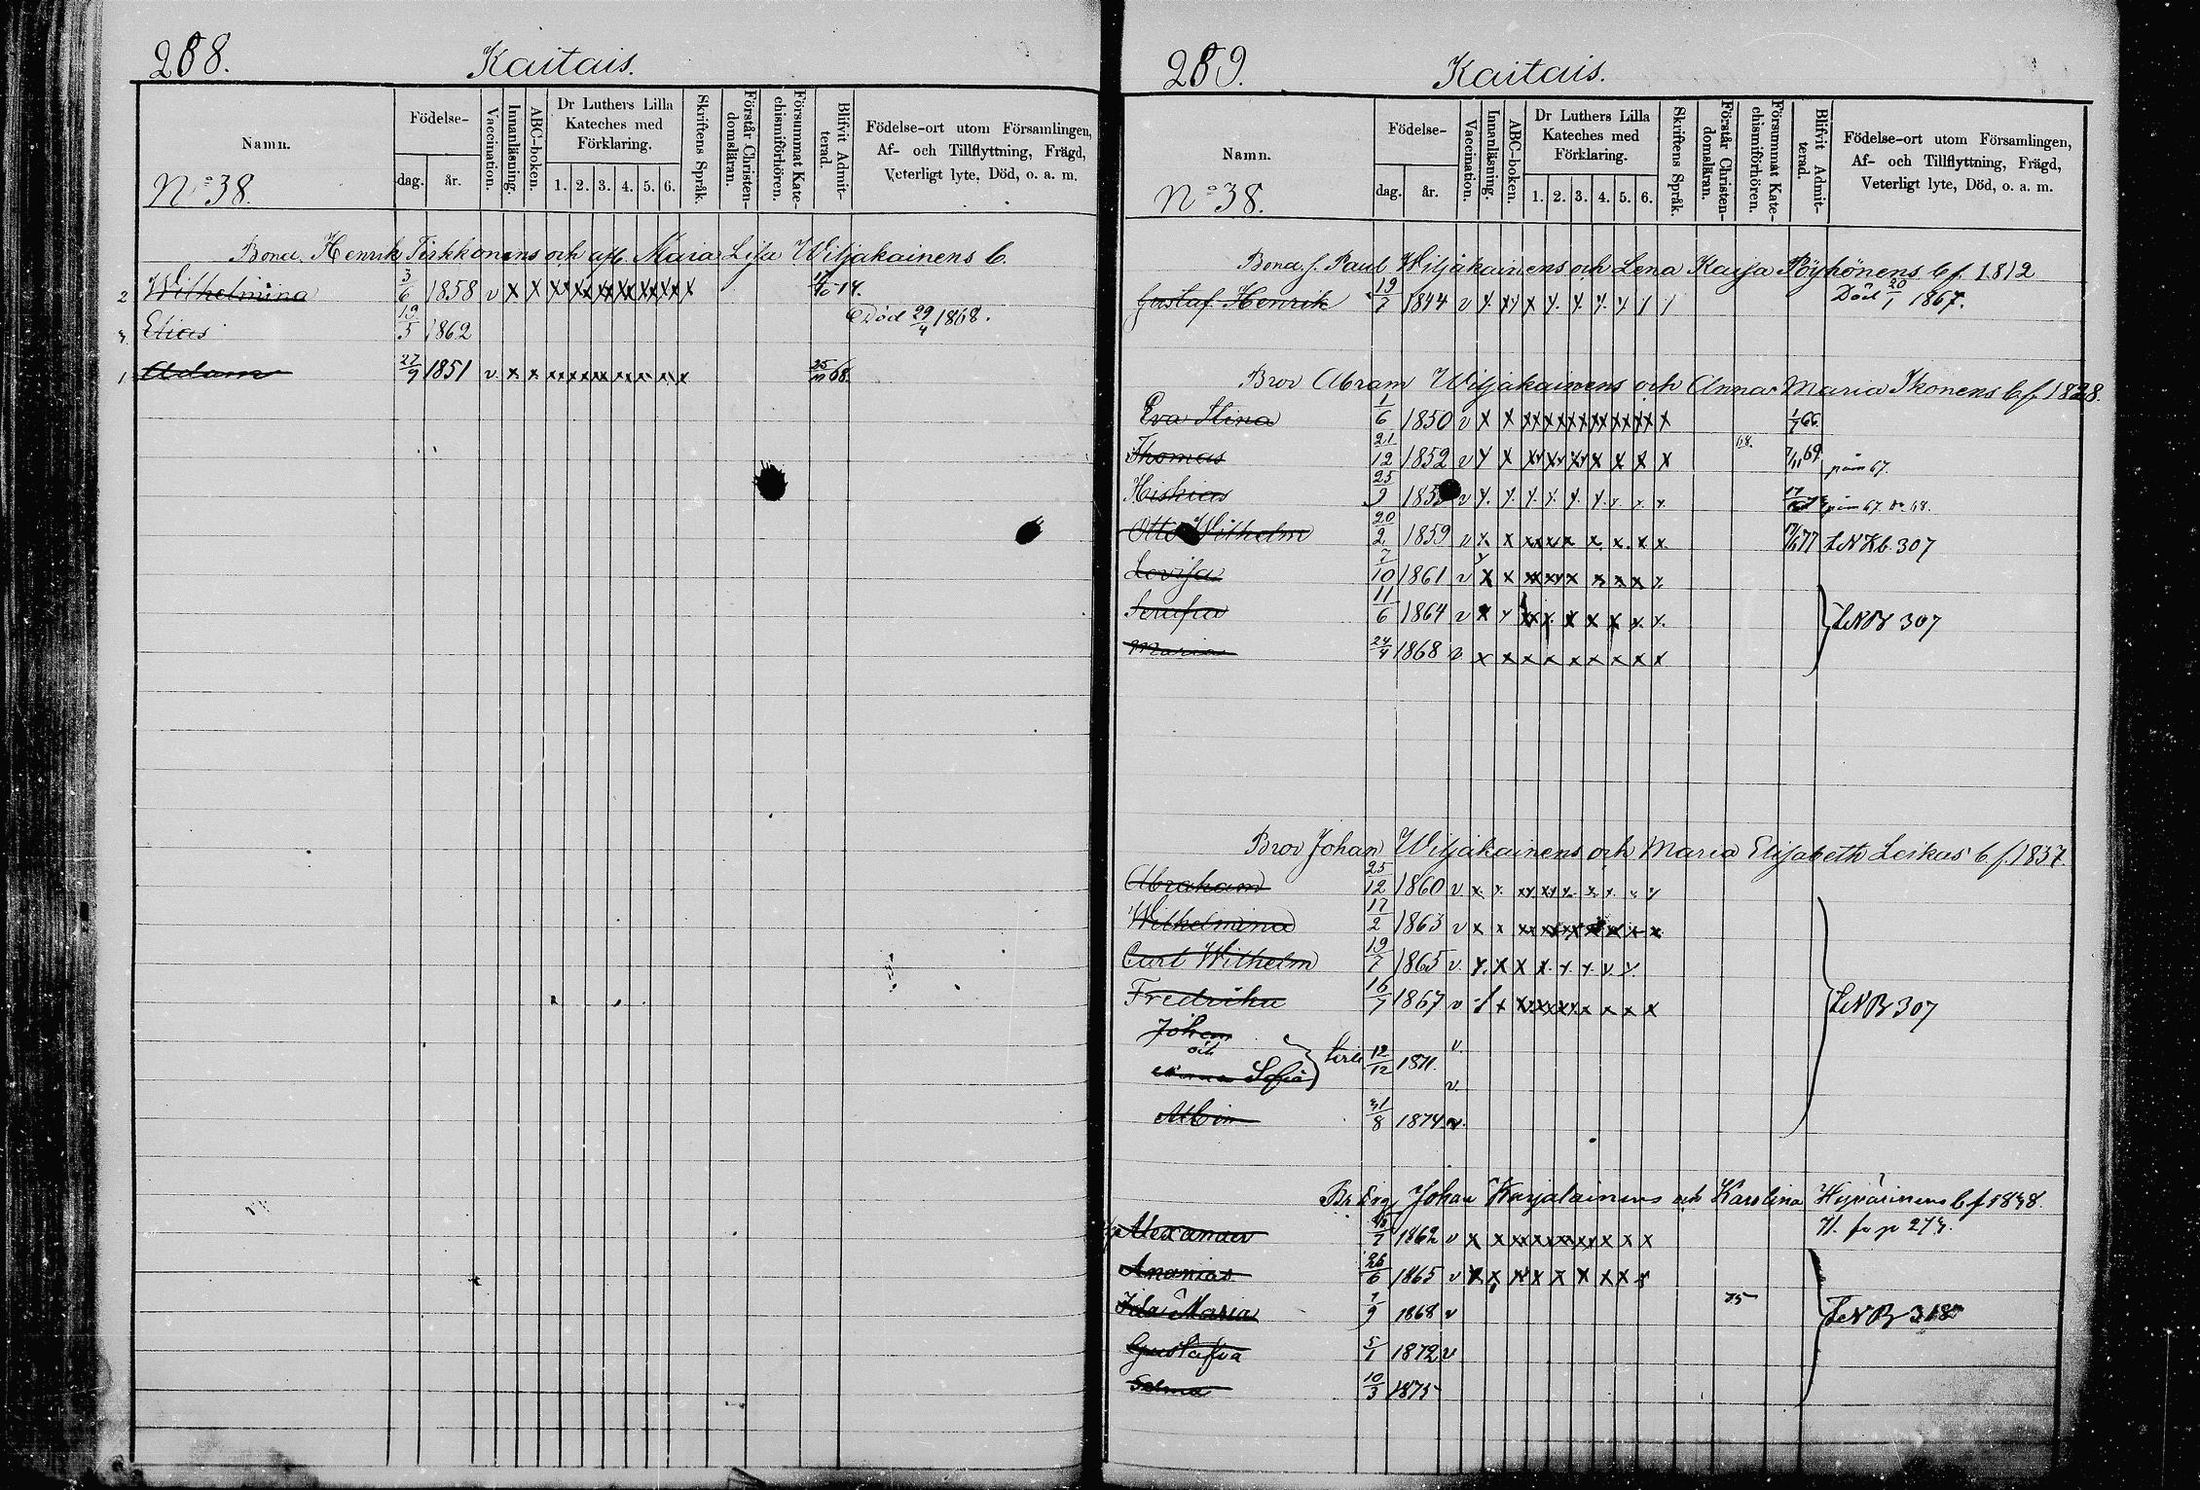 288. Kaitais.
Namn. Födelse- dag. år. Vaccination. Innanläsning. ABC-boken. Dr Luthers Lilla Kateches med Förklaring. 1. 2. 3. 4. 5. 6. Skriftens Språk. Förstår Christendomsläran. Försummat Katechismiförhören. Blifvit Admitterad. Födelse-ort utom Församlingen, Af- och Tillflyttning, Frägd, Veterligt lyte, Död, o. a. m.
No 38.
Bond. Henrik Tirkkonens och Maria Lisa Wiljakainens b.
2 Wilhelmina 3/6 1858 v x x x x x x x x x x x x x
3. Elias 19/5 1862 Död 29/4 1868.
1 Adam 27/9 1851 v x x x x x x x x x x x 68
289. Kaitais.
Namn. Födelse- dag. år. Vaccination. Innanläsning. ABC-boken. Dr Luthers Lilla Kateches med Förklaring. 1. 2. 3. 4. 5. 6. Skriftens Språk. Förstår Christendomsläran. Försummat Katechismiförhören. Blifvit Admitterad. Födelse-ort utom Församlingen, Af- och Tillflyttning, Frägd, Veterligt lyte, Död, o. a. m.
No 38.
Bond. f. Paul Wiljakainens och Lena Kaisa Pöyhönens b f. 1812
Gustaf Henrik 19/7 1844 v x x x x x x x x Död 20/1 1867.
Bror Abram Wiljakainens och Anna Maria Ikonens b f. 1828.
Eva Stina 1/6 1850 v x x x x x x x x x x x x x 66
Thomas 21/12 1852 v x x x x x x x x x x x 68. 7/11 69
Hiskias 25/9 v x x x x x x x x x
Otto Wilhelm 20/2 1859 v x x x x x x x x x x 77 307
Lovisa 7/10 1861 v x x x x x x x x x x
Serafia 11/6 1864 v x x x x x x x x x 307
Maria 24/4 1868 v x x x x x x x x x
Brov Johan Wiljakainens och Maria Elisabeth Leikas b. f. 1837
Abraham 25/12 1860 v x x x x x x x x x x
Wilhelmina 17/2 1863 v x x x x x x x x x x x
Carl Wilhelm 19/7 1865 v x x x x x x x x
Fredrika 16/7 1867 v x x x x x x x x x x 307
Johan v.
och 12/12 1871.
Sofia v.
Albin 31/8 1874 v.
Johan Karjalainens och Karolina Hyvärinens b f 1838.
Alexander 1862 v x x x x x x x x x x x
Ananias 26/6 1865 v x x x x x x x x x
Ida Maria 7/9 1868 v 75 318
Gustafva 5/1 1872 v
Selma 10/3 1875